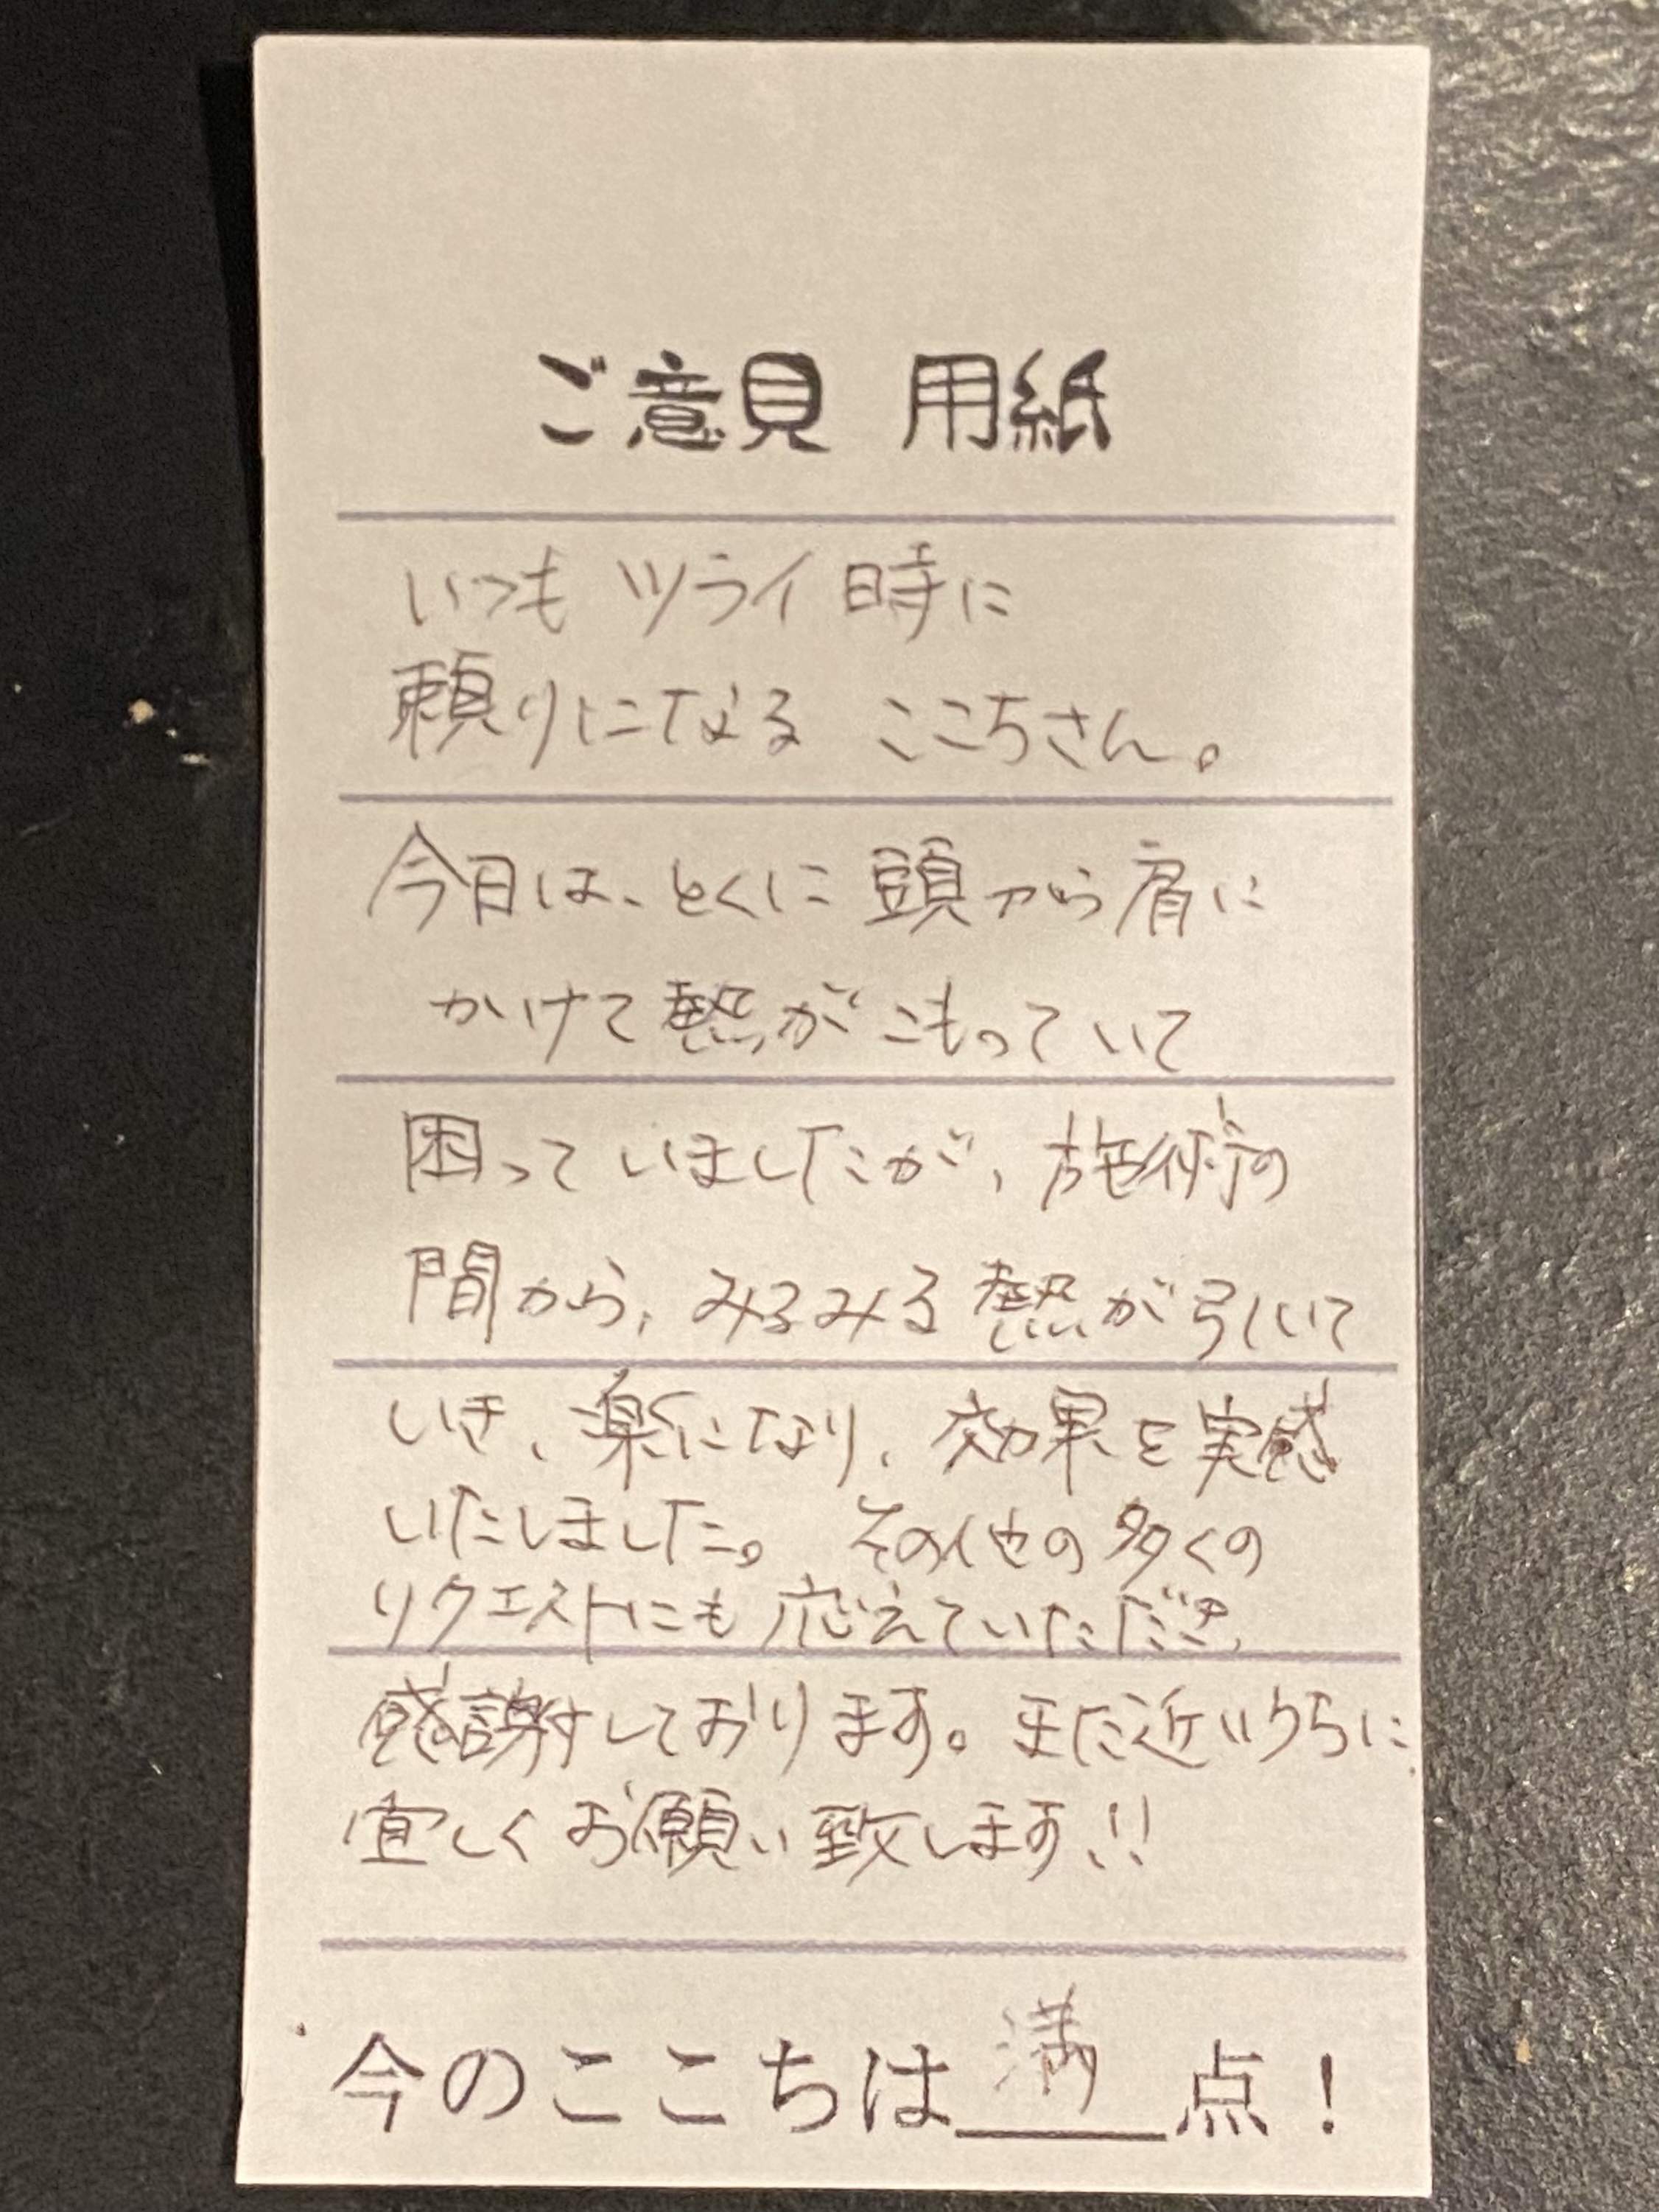 ご意見 用紙
いつも ツライ 時に
頼りになる ここちさん。
今日は、とくに 頭から肩に
かけて熱が こもっていて
困って いましたが、施術の
間から、みるみる 熱が引いて
いき、楽になり、効果を実感
いたしました。 その他の多くの
リクエストにも 応えていただき、
感謝しております。また近いうちに
宜しく お願い 致します!!
今のここちは満点！